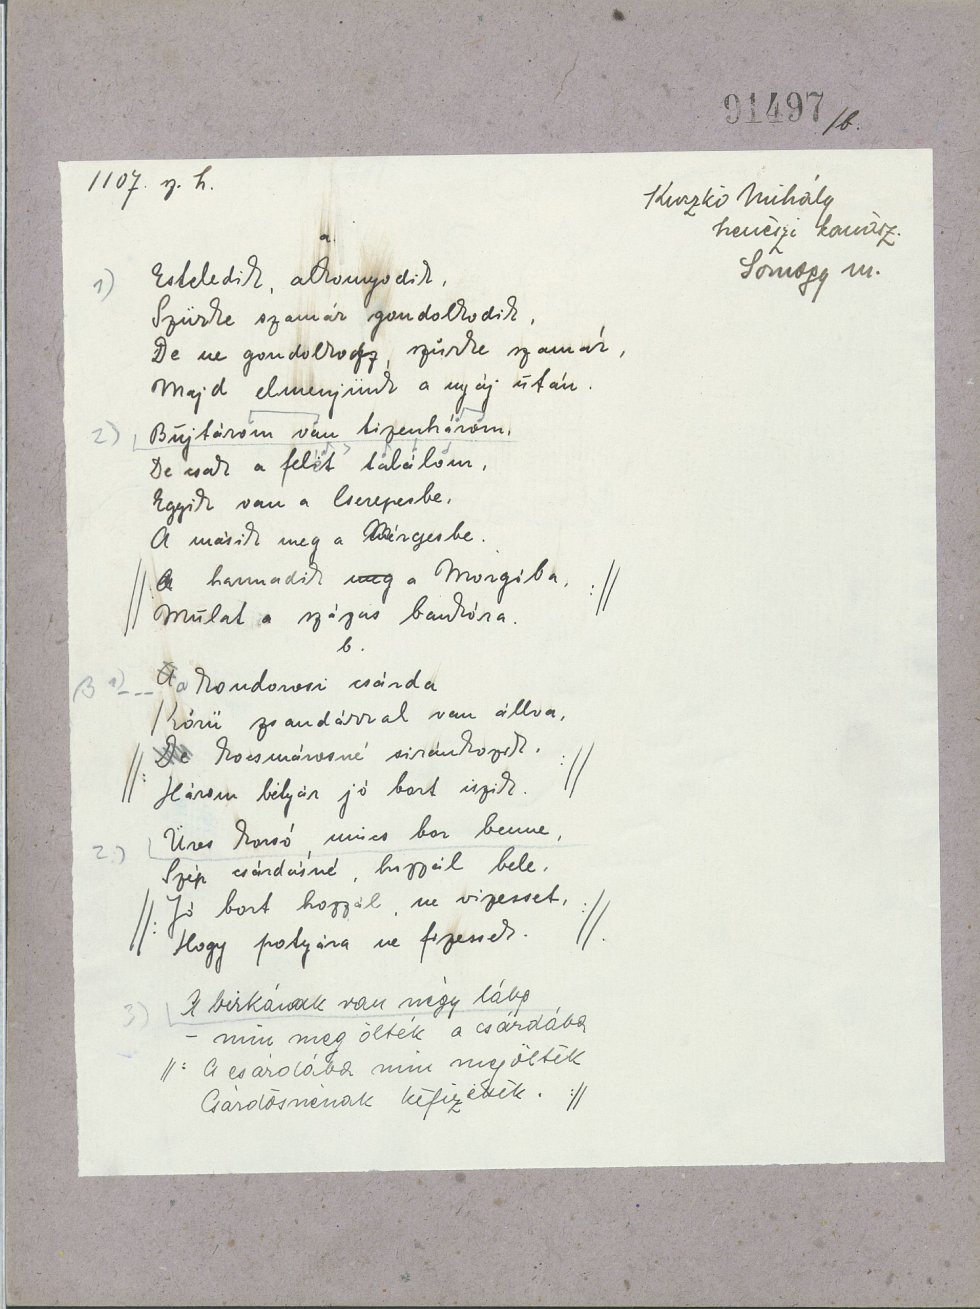 91497/b.
1107. sz. h.
Kuszkó Mihály
henészi kanász.
Somogy m.
a.
1) Esteledik, alkonyodik,
Szürke szamár gondolkodik,
De ne gondolkodj, szürke szamár,
Majd elmenjünk a nyáj után.
2) Bújtárom van tizenhárom,
De csak a felét találom,
Eggyik van a Cserepesbe,
A másik meg a Vérgesbe.
//: A harmadik meg a Morgóba, ://
Mulat a százas bankóra.
b.
B 1) A kondorosi csárda
Körü zsandárral van állva,
//: De kocsmárosné siránkozik. ://
Három bétyár jó bort iszik.
2.) Üres korsó, nincs bor benne,
Szép csárdásné, huzzál bele,
//: Jó bort hozzál, ne vizesset, ://.
Hogy potyára ne fizessek.
3) A birkának van négy lába
– min meg ölték a csárdába
//: A csárdába min megölték
Csárdásnénak kifizették. ://